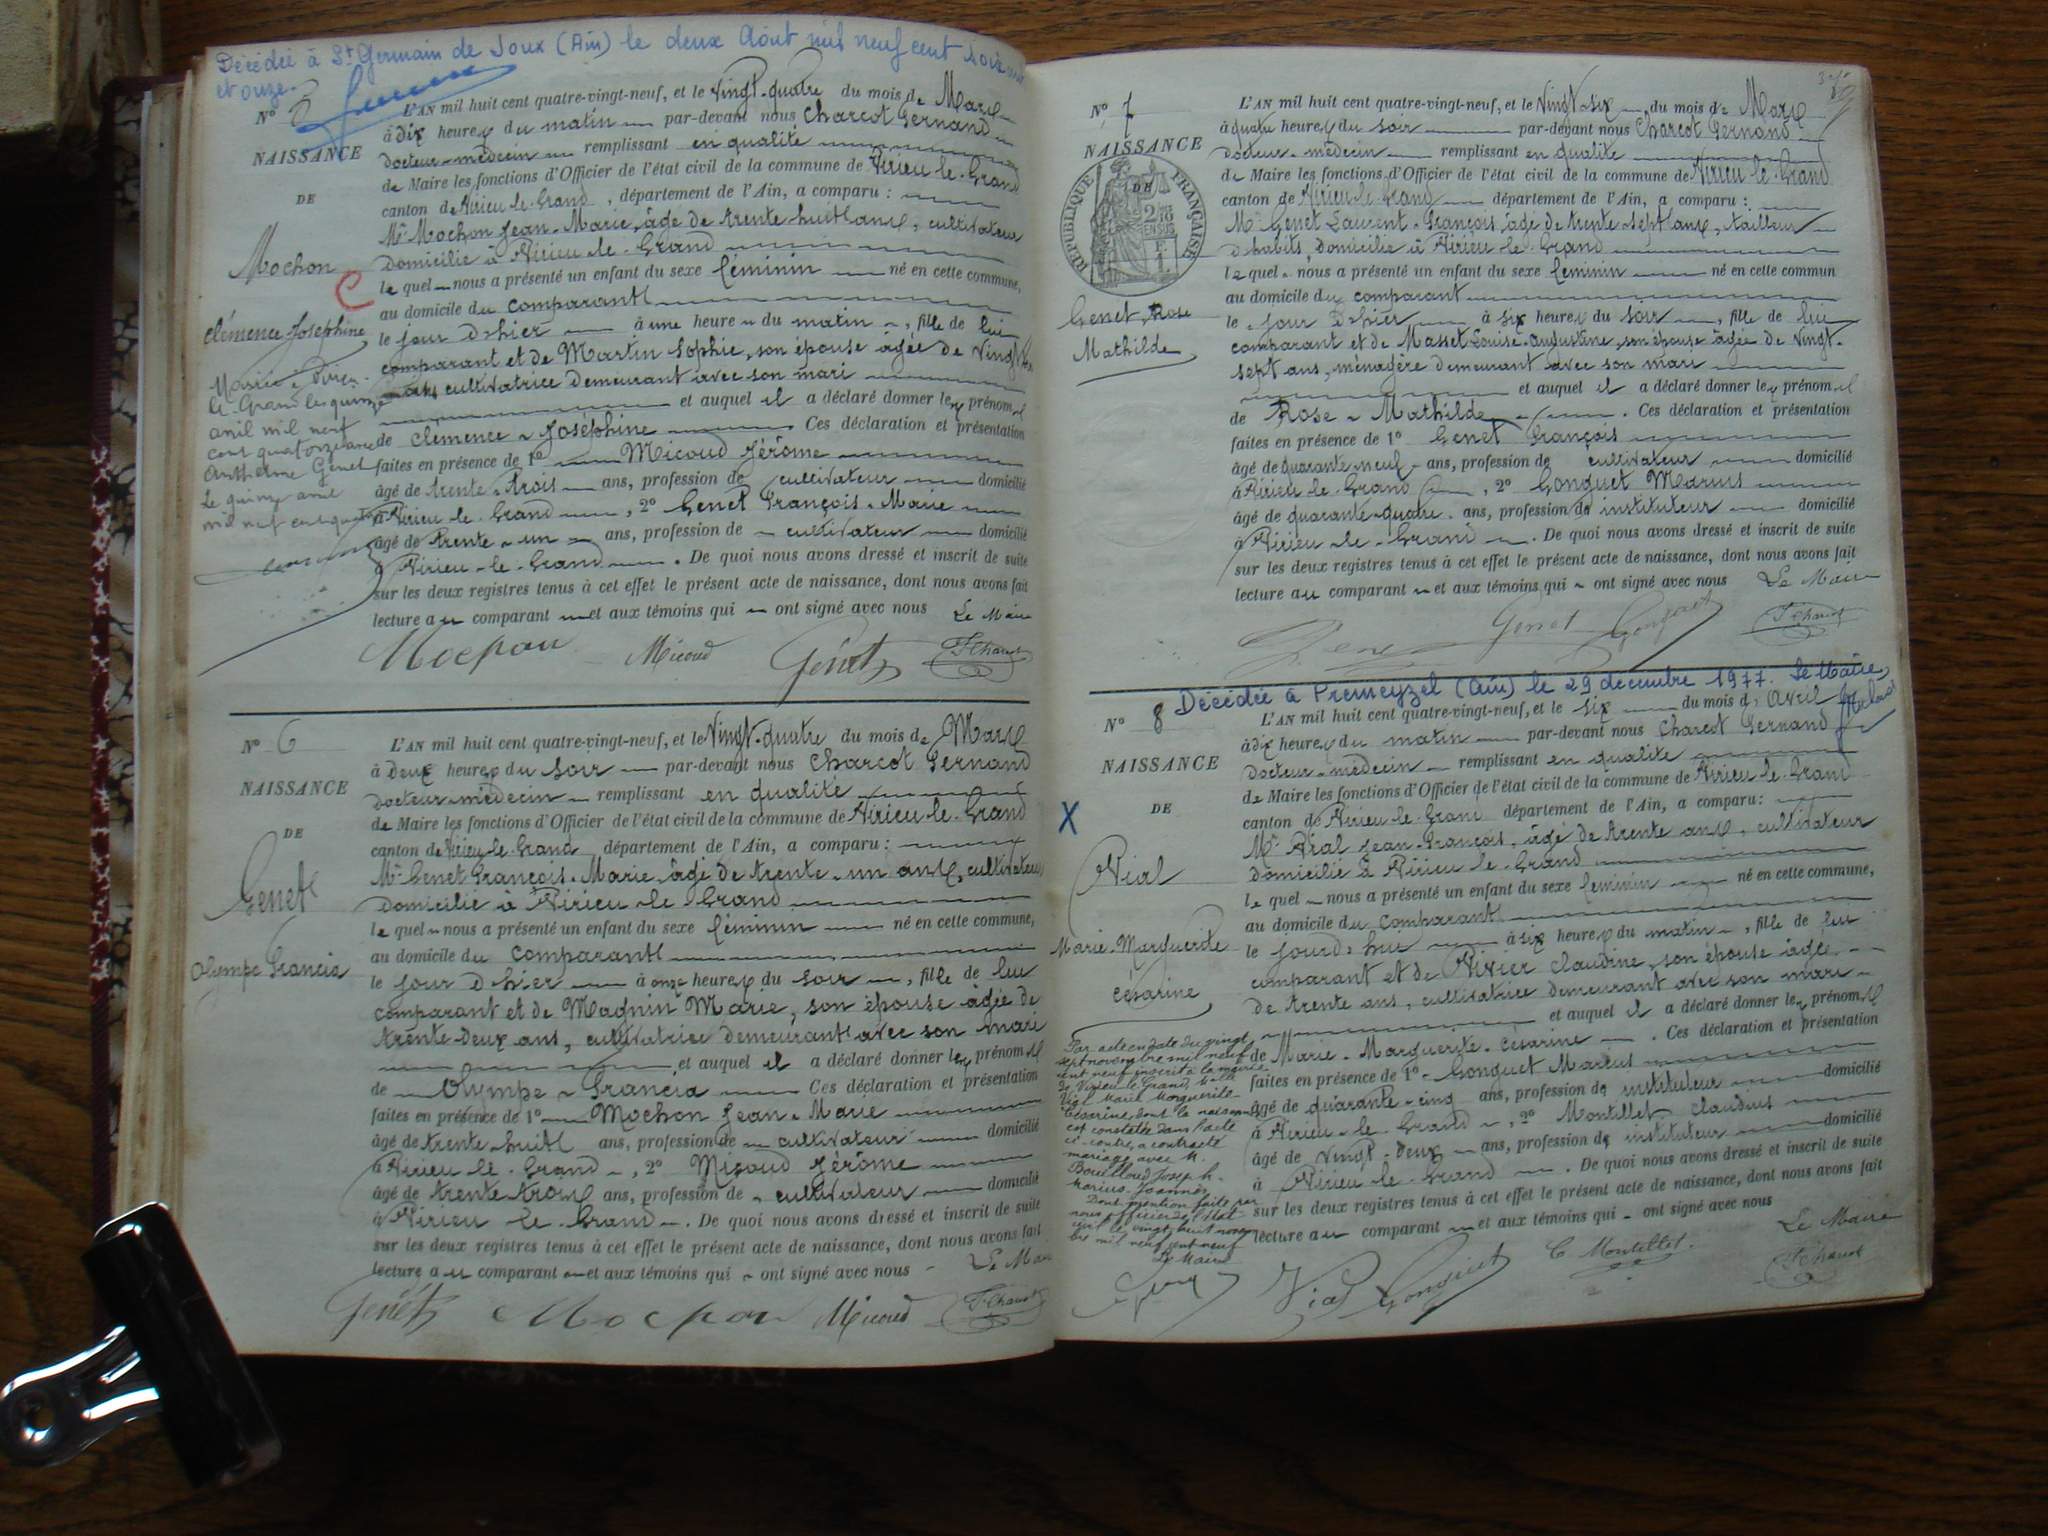 Décédée à St Germain de Joux (Ain) le deux Août mil neuf cent soixante
et onze.
N°
NAISSANCE
DE
Mochon
C
Clémence Joséphine
Mariée à Virieu-
le-Grand le quinze
avril mil neuf
cent quatorze avec
Anthelme Genet
Le quinze avril
mil neuf cent quatorze
L'AN mil huit cent quatre-vingt-neuf, et le Vingt-quatre du mois de Mars
à dix heures du matin par-devant nous Charcot Fernand
docteur-médecin remplissant en qualité
de Maire les fonctions d'Officier de l'état civil de la commune de Virieu-le-Grand
canton de Virieu-le-Grand, département de l'Ain, a comparu :
Mr Mochon Jean-Marie, âgé de trente huit ans, cultivateur
domicilié à Virieu-le-Grand
lequel nous a présenté un enfant du sexe féminin né en cette commune,
au domicile du comparant
le jour d'hier à une heure du matin, fille de lui
comparant et de Martin Sophie, son épouse âgée de Vingt
ans cultivatrice demeurant avec son mari
et auquel il a déclaré donner les prénoms
de Clémence-Joséphine. Ces déclaration et présentation
faites en présence de 1° Micoud Jérôme
âgé de trente-trois ans, profession de cultivateur domicilié
à Virieu-le-Grand, 2° Genet François-Marie
âgé de trente-un ans, profession de cultivateur domicilié
à Virieu-le-Grand. De quoi nous avons dressé et inscrit de suite
sur les deux registres tenus à cet effet le présent acte de naissance, dont nous avons fait
lecture au comparant et aux témoins qui ont signé avec nous Le Maire
Mochon Micoud Génet F. Charcot
N° 6
NAISSANCE
DE
Genet
Olympe Francia
L'AN mil huit cent quatre-vingt-neuf, et le Vingt-quatre du mois de Mars
à Deux heures du soir par-devant nous Charcot Fernand
docteur-médecin remplissant en qualité
de Maire les fonctions d'Officier de l'état civil de la commune de Virieu-le-Grand
canton de Virieu-le-Grand, département de l'Ain, a comparu :
Mr Genet François-Marie, âgé de trente-un ans, cultivateur
domicilié à Virieu-le-Grand
lequel nous a présenté un enfant du sexe féminin né en cette commune,
au domicile du comparant
le jour d'hier à onze heures du soir, fille de lui
comparant et de Magnin Marie, son épouse âgée de
trente-deux ans, cultivatrice demeurant avec son mari
et auquel il a déclaré donner les prénoms
de Olympe-Francia Ces déclaration et présentation
faites en présence de 1° Mochon Jean-Marie
âgé de trente-huit ans, profession de cultivateur domicilié
à Virieu-le-Grand, 2° Micoud Jérôme
âgé de trente-trois ans, profession de cultivateur domicilié
à Virieu-le-Grand. De quoi nous avons dressé et inscrit de suite
sur les deux registres tenus à cet effet le présent acte de naissance, dont nous avons fait
lecture au comparant et aux témoins qui ont signé avec nous Le Maire
Génet Mochon Micoud F. Charcot
N° 7
NAISSANCE
DE
RÉPUBLIQUE FRANÇAISE
2/10 EN SUS
Genet, Rose
Mathilde
L'AN mil huit cent quatre-vingt-neuf, et le Vingt-six du mois de Mars
à quatre heures du soir par-devant nous Charcot Fernand
docteur-médecin remplissant en qualité
de Maire les fonctions d'Officier de l'état civil de la commune de Virieu-le-Grand
canton de Virieu-le-Grand département de l'Ain, a comparu :
Mr Genet Laurent-François, âgé de trente-sept ans, tailleur
d'habits, domicilié à Virieu-le-Grand
lequel nous a présenté un enfant du sexe féminin né en cette commun
au domicile du comparant
le jour d'hier à six heures du soir, fille de lui
comparant et de Masset Louise-Augustine, son épouse âgée de Vingt-
sept ans, ménagère demeurant avec son mari
et auquel il a déclaré donner les prénoms
de Rose-Mathilde. Ces déclaration et présentation
faites en présence de 1° Genet François
âgé de quarante neuf ans, profession de cultivateur domicilié
à Virieu-le-Grand, 2° Gonguet Marius
âgé de quarante-quatre ans, profession de instituteur domicilié
à Virieu-le-Grand. De quoi nous avons dressé et inscrit de suite
sur les deux registres tenus à cet effet le présent acte de naissance, dont nous avons fait
lecture au comparant et aux témoins qui ont signé avec nous Le Maire
Genet Gonguet F. Charcot
Décédée à Premeyzel (Ain) le 29 décembre 1977. Le Maire,
N° 8
NAISSANCE
DE
X
Vial
Marie-Marguerite
Césarine
Par acte en date du vingt
sept novembre mil neuf
cent neuf inscrit à la mairie
de Virieu-le-Grand, Melle
Vial Marie Marguerite
Césarine, dont la naissance
est constatée dans l'acte
ci-contre, a contracté
mariage avec M.
Bouilloud Joseph
Marius Joannès
Dont mention faite par
nous officier de l'état
civil le vingt huit novem
bre mil neuf cent neuf
Le Maire
L'AN mil huit cent quatre-vingt-neuf, et le six du mois d'Avril
à dix heures du matin par-devant nous Charcot Fernand
docteur-médecin remplissant en qualité
de Maire les fonctions d'Officier de l'état civil de la commune de Virieu-le-Grand
canton de Virieu-le-Grand département de l'Ain, a comparu :
Mr Vial Jean-François, âgé de trente ans, cultivateur
domicilié à Virieu-le-Grand
lequel nous a présenté un enfant du sexe féminin né en cette commune,
au domicile du comparant
le jourd'hui à six heures du matin, fille de lui
comparant et de Vivier Claudine, son épouse âgée
de trente ans, cultivatrice demeurant avec son mari
et auquel il a déclaré donner les prénoms
de Marie-Marguerite-Césarine. Ces déclaration et présentation
faites en présence de 1° Gonguet Marius
âgé de quarante-cinq ans, profession de instituteur domicilié
à Virieu-le-Grand, 2° Montillet Claudius
âgé de vingt-deux ans, profession de instituteur domicilié
à Virieu-le-Grand. De quoi nous avons dressé et inscrit de suite
sur les deux registres tenus à cet effet le présent acte de naissance, dont nous avons fait
lecture au comparant et aux témoins qui ont signé avec nous
Le Maire
Vial Gonguet C. Montillet. F. Charcot